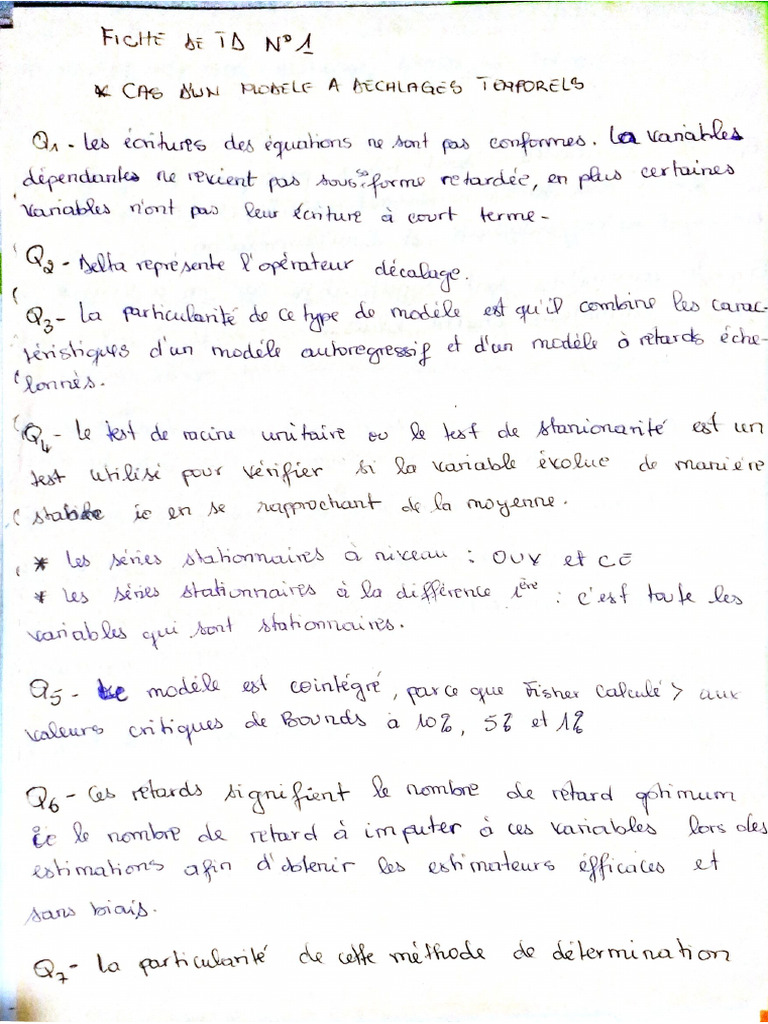 FICHE DE TD N°1
* CAS D'UN MODELE A DECALAGES TEMPORELS
Q1 - Les écritures des équations ne sont pas conformes. La variables
dépendantes ne revient pas sous forme retardée, en plus certaines
variables n'ont pas leur écriture à court terme -
Q2 - Delta représente l'opérateur décalage.
Q3 - La particularité de ce type de modèle est qu'il combine les carac-
téristiques d'un modèle autoregressif et d'un modèle à retards éche-
lonnés.
Q4 - Le test de racine unitaire ou le test de stanionarité est un
test utilisé pour vérifier si la variable évolue de manière
stable ie en se rapprochant de la moyenne.
* Les séries stationnaires à niveau : OUV et CE
* Les séries stationnaires à la différence 1ère : c'est toute les
variables qui sont stationnaires.
Q5 - Le modèle est cointégré, parce que Fisher calculé > aux
valeurs critiques de Bounds à 10%, 5% et 1%
Q6 - Ces retards signifient le nombre de retard optimum
ie le nombre de retard à imputer à ces variables lors des
estimations afin d'obtenir les estimateurs éfficaces et
sans biais.
Q7 - La particularité de cette méthode de détermination